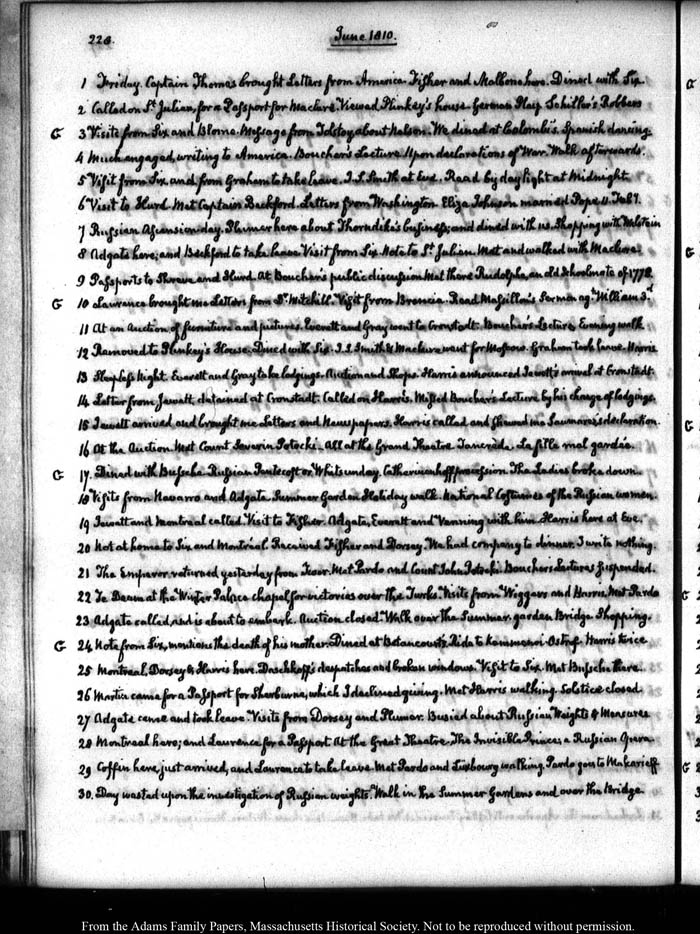 228.
June 1810.
1 Friday. Captain Thomas brought Letters from America. Fisher and Malbone here. Dined with Six.
2 Called on St Julien, for a Passport for Maclure. Viewed Plinkey's house. German Play. Schiller's Robbers
G 3 Visits from Six and Blome. Message from Tolstoy about Nelson. We dined at Colombi's. Spanish dancing.
4 Much engaged, writing to America. Boucher's Lecture. Upon declarations of War. Walk afterwards.
5 Visit from Six, and from Graham to take leave. J. S. Smith at Eve. Read by daylight at Midnight.
6 Visit to Hurd. Met Captain Beckford. Letters from Washington. Eliza Johnson married Pope
7 Russian Ascension-day. Plumer here about Thorndike's business; and dined with us. Shopping with
8 Adgate here; and Beckford to take leave. Visit from Six. Note to St Julien. Met and walked with Maclure.
9 Passports to Shreve and Hurd. At Boucher's public discussion. Met there Rudolph, an old Schoolmate of 1778.
G 10 Lawrance brought me Letters from Dr Mitchill. Visit from Brancia. Read Massillon's Sermon ag. William 3d
11 At an Auction of furniture and pictures. Everett and Gray went to Cronstadt. Boucher's Lecture, Evening walk
12 Removed to Plinkey's House. Dined with Six. J. S. Smith & Maclure went for Moscow. Graham took leave. Harris
13 Sleepless Night. Everett and Gray take lodgings. Auction and Shops. Harris announced Jewett's arrival at Cronstadt.
14 Letter from Jewett, detained at Cronstadt. Called on Harris. Missed Boucher's Lecture by his change of lodgings.
15 Jewett arrived and brought me Letters and Newspapers. Harris called and shewed me Saumarez's declaration.
16 At the Auction. Met Count Severin Potocki. All at the Grand Theatre. Tancrede. La fille mal gardée.
G 17. Dined with Bussche. Russian Pentecost or Whitsunday. Catherinenhoff procession. The Ladies broke down.
18 Visits from Navarro and Adgate. Summer Garden. Holiday walk. National Costumes of the Russian women.
19 Jewett and Montreal called. Visit to Fisher. Adgate, Everett and Venning with him. Harris here at Eve.
20 Not at home to Six and Montreal. Received Fisher and Dorsey. We had company to dinner. I write nothing.
21 The Emperor returned yesterday from Twer. Met Pardo and Count John Potocki. Boucher's Lectures suspended.
22 Te Deum at the Winter Palace chapel for victories over the Turks. Visits from Wiggers and Harris. Met Pardo
23 Adgate called, and is about to embark. Auction closed. Walk over the Summer garden Bridge. Shopping.
G 24. Note from Six, mentions the death of his mother. Dined at Betancourt's. Ride to Kammenoi-Ostrof. Harris twice
25 Montreal, Dorsey & Harris here. Daschkoff's despatches and broken windows. Visit to Six. Met Bussche there.
26 Martin came for a Passport for Sherburne, which I declined giving. Met Harris walking. Solstice closed
27 Adgate came and took leave. Visits from Dorsey and Plumer. Busied about Russian Weights & Measures
28 Montreal here; and Lawrence for a Passport. At the Great Theatre. The Invisible Prince; a Russian Opera
29 Coffin here, just arrived, and Laurence to take leave. Met Pardo and Luxbourg walking. Pardo gone to Makarieff
30. Day wasted upon the investigation of Russian weights. Walk in the Summer Gardens and over the Bridge.
From the Adams Family Papers, Massachusetts Historical Society. Not to be reproduced without permission.